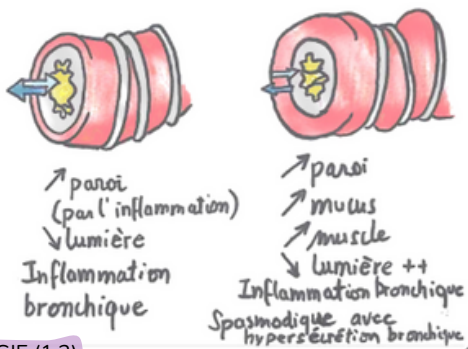 ↗ paroi
(par l'inflammation)
↘ lumière
Inflammation
bronchique
↗ paroi
↗ mucus
↗ muscle
↘ lumière ++
Inflammation bronchique
Spasmodique avec
hypersécrétion bronchique
GIE (1.2)